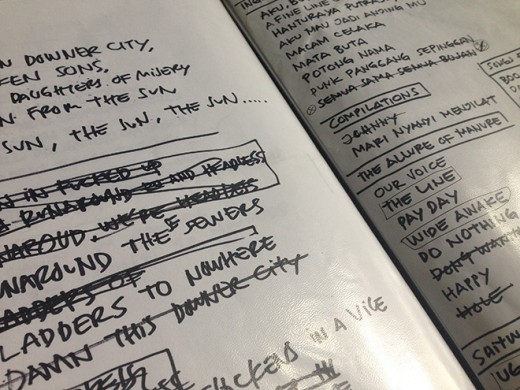 N DOWNER CITY,
KEN SONS,
DAUGHTERS OF MISERY
N FROM THE SUN
SUN, THE SUN, THE SUN.....
N IN FUCKED UP
RUNAROUND AND HEADLESS
NAROUND, WE'RE HEADLESS
NAROUND THE SEWERS
LADDERS OF
LADDERS TO NOWHERE
DAMN THIS DOWNER CITY
IN A VICE
A FINE LINE
HANTURAYA
AKU MAU JADI ANJING MU
MACAM CELAKA
MATA BUTA
POTONG NAMA
PUNK PANGGANG SEPINGGAN
SEMUA SAMA SEMUA BUKAN
COMPILATIONS
JOHNNY
MARI NYANYI MENJILAT
THE ALLURE OF MANURE
OUR VOICE
THE LINE
PAY DAY
WIDE AWAKE
DO NOTHING
DON'T WANT
HAPPY
HOLE